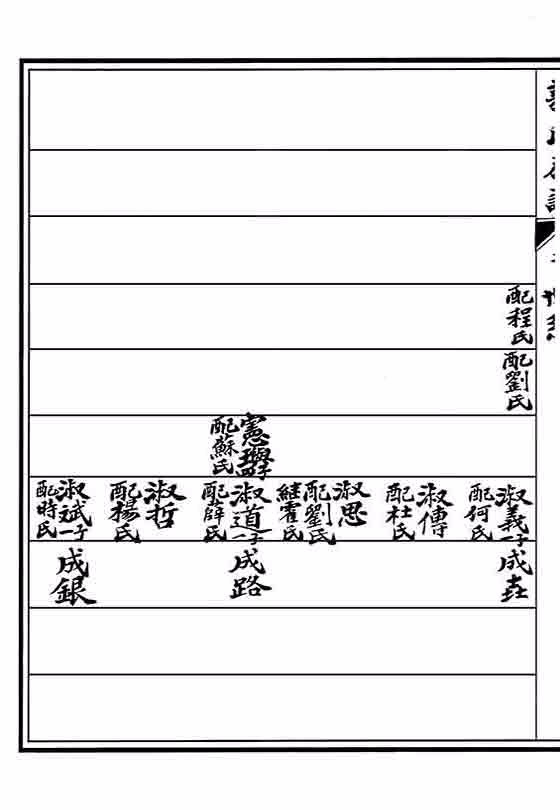 配程氏
配劉氏
憲
配蘇氏
淑義一子
配何氏
淑傳
配杜氏
淑思
配劉氏
繼霍氏
淑道一子
配薛氏
淑哲
配楊氏
淑斌一子
配時氏
成
成路
成銀